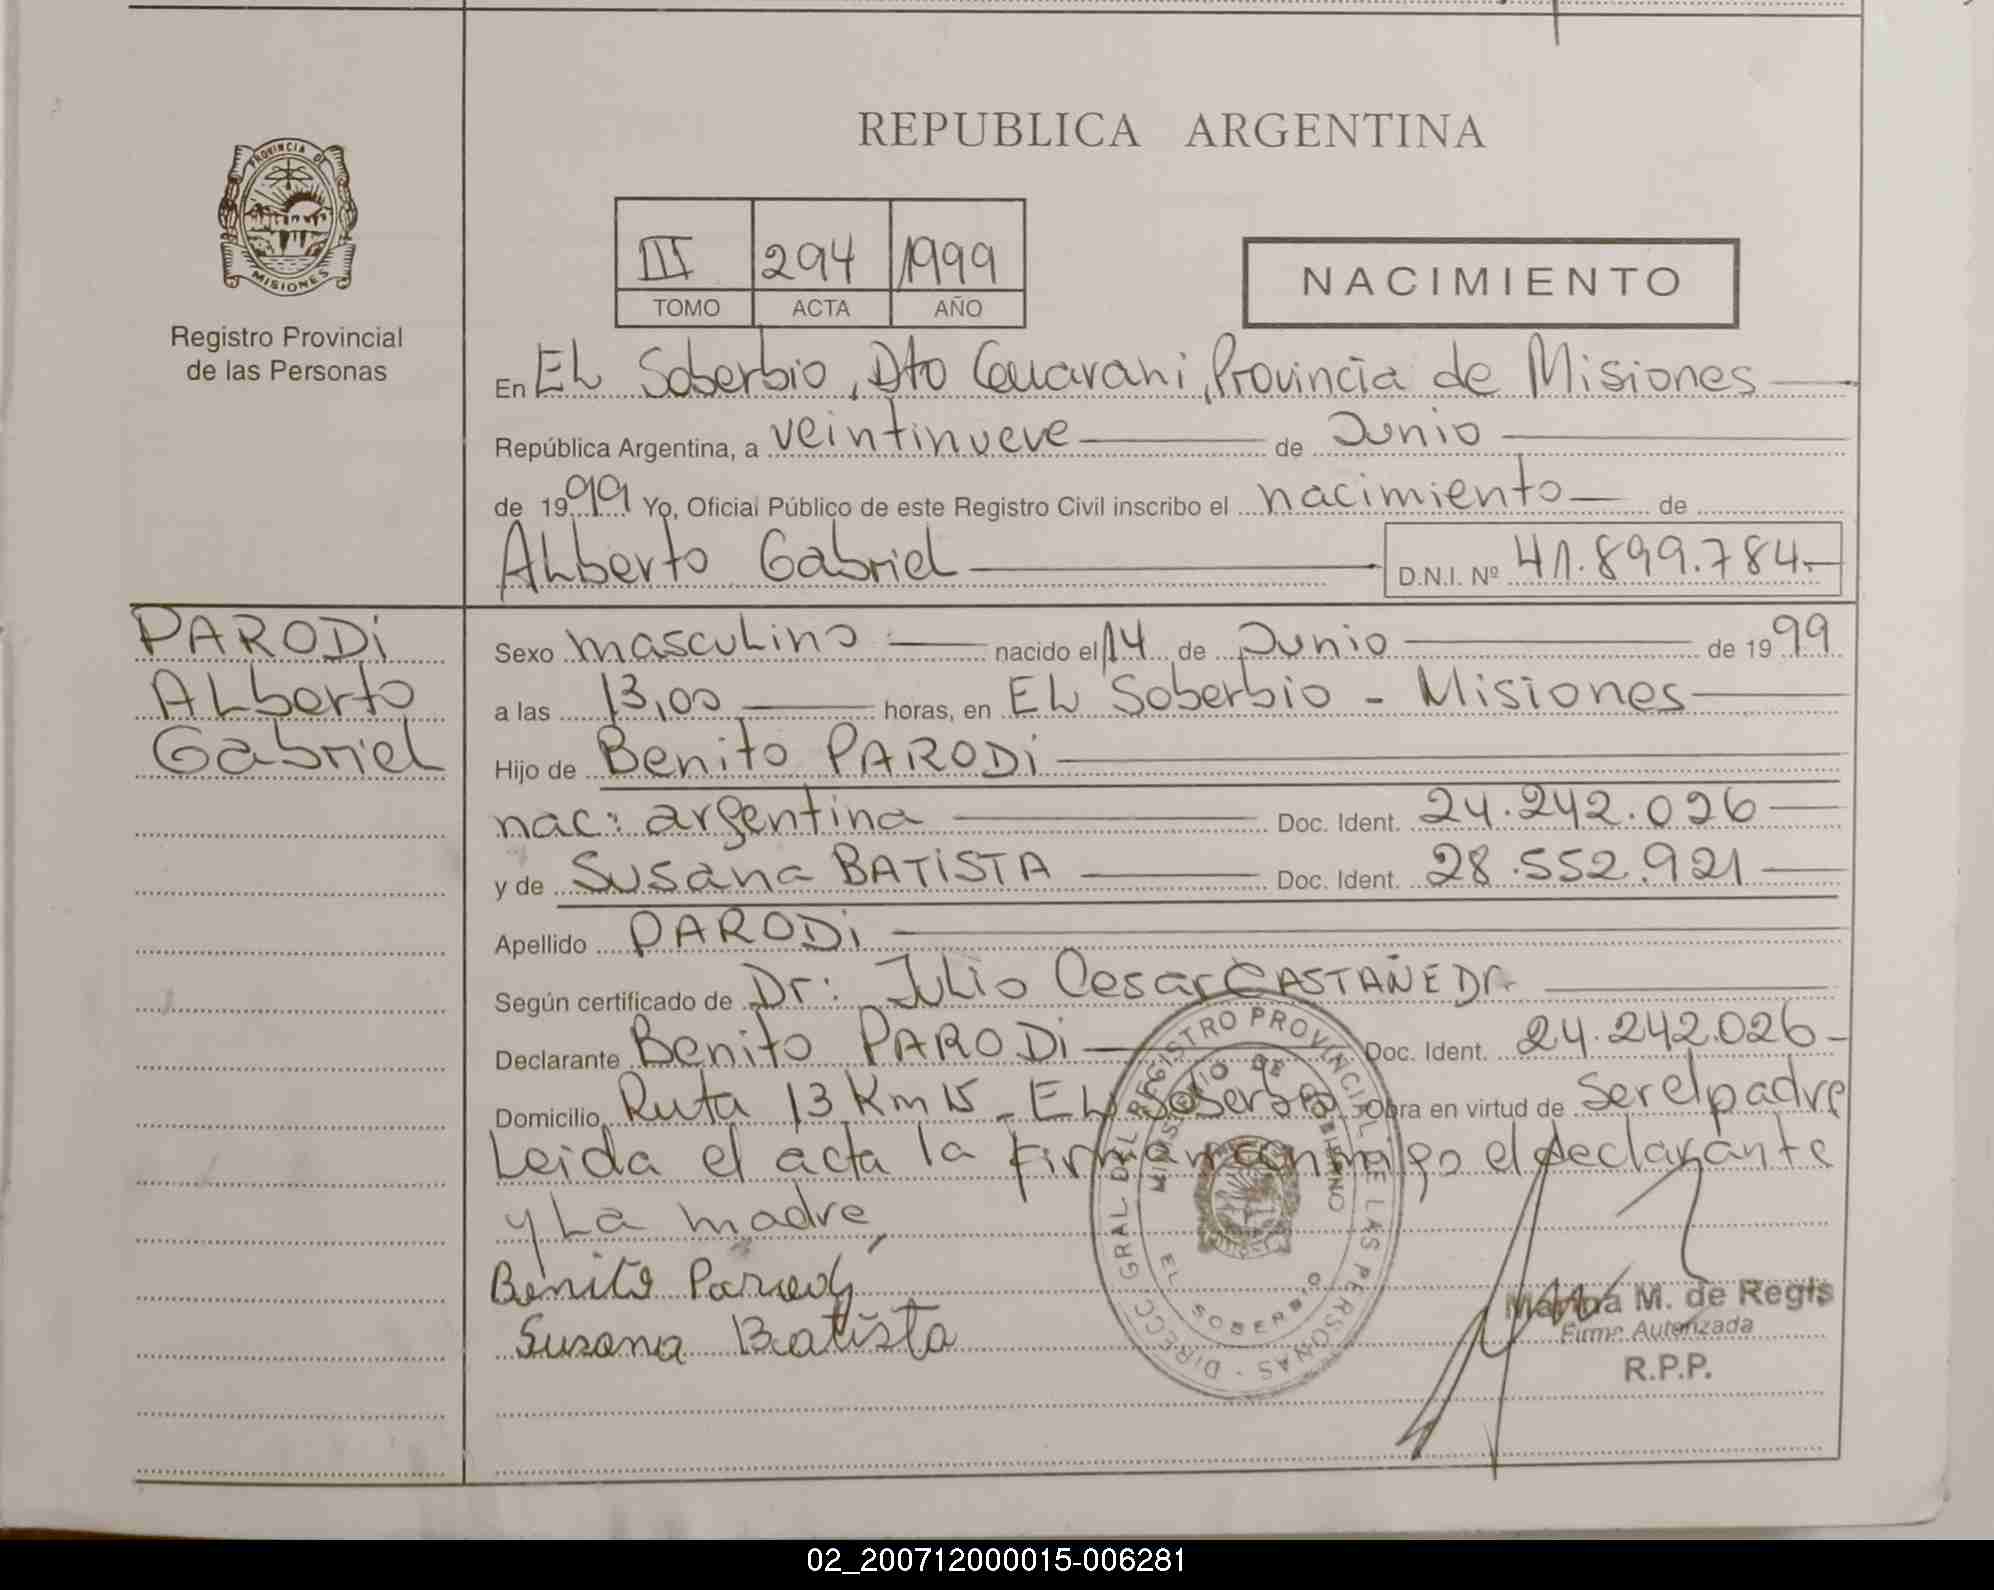 REPUBLICA ARGENTINA
PROVINCIA DE
MISIONES
Registro Provincial
de las Personas
III 294 1999
TOMO ACTA AÑO
NACIMIENTO
En EL Soberbio, Dto Guarani, Provincia de Misiones
República Argentina, a veintinueve de Junio
de 1999 Yo, Oficial Público de este Registro Civil inscribo el nacimiento de
Alberto Gabriel D.N.I. Nº 41.899.784.-
PARODi
ALberto
Gabriel
Sexo mascuLino nacido el 14 de Junio de 1999
a las 13,00 horas, en EL Soberbio - Misiones
Hijo de Benito PARODi
nac: argentina Doc. Ident. 24.242.026
y de Susana BATiSTA Doc. Ident. 28.552.921
Apellido PARODi
Según certificado de Dr: Julio Cesar CASTAÑEDA
Declarante Benito PARODi Doc. Ident. 24.242.026-
Domicilio Ruta 13 Km 15 - EL Soberbio Obra en virtud de ser el padre
Leida el acta la firman conmigo el declarante
y La madre,
Benito Parodi
Susana Batista
DIRECC. GRAL DEL REGISTRO PROVINCIAL DE LAS PERSONAS
MINISTERIO DE GOBIERNO
EL SOBERBIO
M. de Regis
Firma Autorizada
R.P.P.
02_200712000015-006281